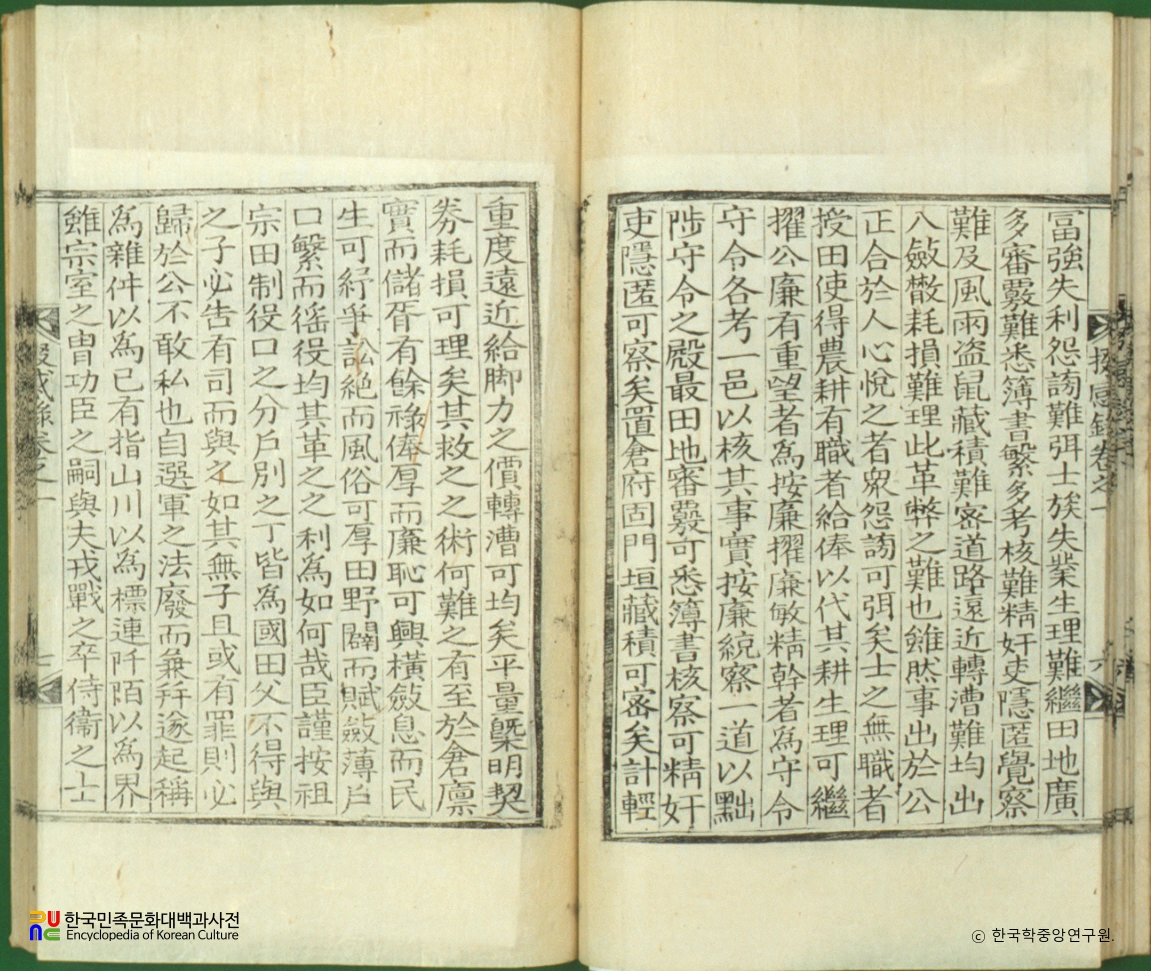 富強失利怨謗難弭士族失業生理難繼田地廣
多審覈難悉簿書繁多考核難精奸吏隱匿覺察
難及風雨盗鼠藏積難密道路遠近轉漕難均出
入斂散耗損難理此革弊之難也雖然事出於公
正合於人心悅之者衆怨謗可弭矣士之無職者
授田使得農耕有職者給俸以代其耕生理可繼
擢公廉有重望者為按廉擢廉敏精幹者為守令
守令各考一邑以核其事實按廉統察一道以黜
陟守令之殿最田地審覈可悉簿書核察可精奸
吏隱匿可察矣置倉府固門垣藏積可密矣計輕
重度遠近給脚力之價轉漕可均矣平量槩明契
券耗損可理矣其救之之術何難之有至於倉廩
實而儲胥有餘祿俸厚而廉恥可興橫斂息而民
生可紓爭訟絶而風俗可厚田野闢而賦斂薄戶
口繁而徭役均其革之之利為如何哉臣謹按祖
宗田制役口之分戶別之丁皆為國田父不得與
之子必告有司而與之如其無子且或有罪則必
歸於公不敢私也自選軍之法廢而兼幷遂起稱
為雜件以為己有指山川以為標連阡陌以為界
雖宗室之冑功臣之嗣與夫戎戰之卒侍衞之士
卷之一
卷之一
한국민족문화대백과사전
Encyclopedia of Korean Culture
© 한국학중앙연구원.